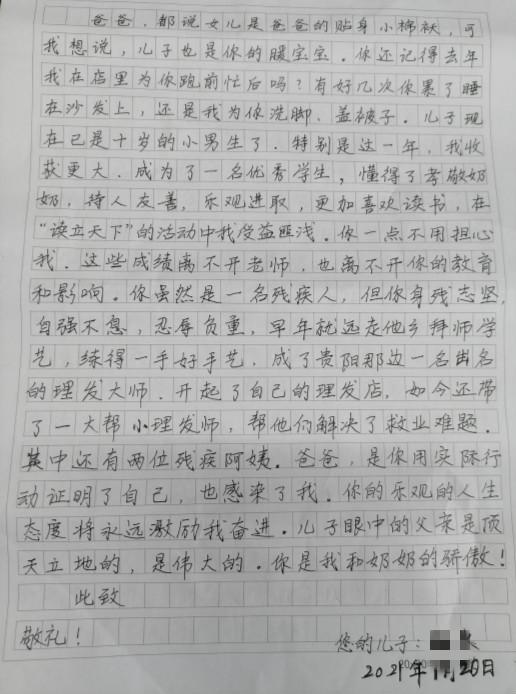 爸爸，都说女儿是爸爸的贴身小棉袄，可
我想说，儿子也是你的暖宝宝。你还记得去年
我在店里为你跑前忙后吗？有好几次你累了睡
在沙发上，还是我为你洗脚、盖被子。儿子现
在已是十岁的小男生了．特别是这一年，我收
获更大．成为了一名优秀学生，懂得了孝敬奶
奶，待人友善，乐观进取，更加喜欢读书，在
“读立天下”的活动中我受益匪浅。你一点不用担心
我．这些成绩离不开老师，也离不开你的教育
和影响。你虽然是一名残疾人，但你身残志坚，
自强不息，忍辱负重，早年就远走他乡拜师学
艺，练得一手好手艺．成了贵阳那边一名出名
的理发大师．开起了自己的理发店，如今还带
了一大帮小理发师，帮他们解决了就业难题．
其中还有两位残疾阿姨．爸爸，是你用实际行
动证明了自己，也感染了我．你的乐观的人生
态度将永远激励我奋进．儿子眼中的父亲是顶
天立地的，是伟大的．你是我和奶奶的骄傲！
此致
敬礼！
您的儿子：
2021年1月26日